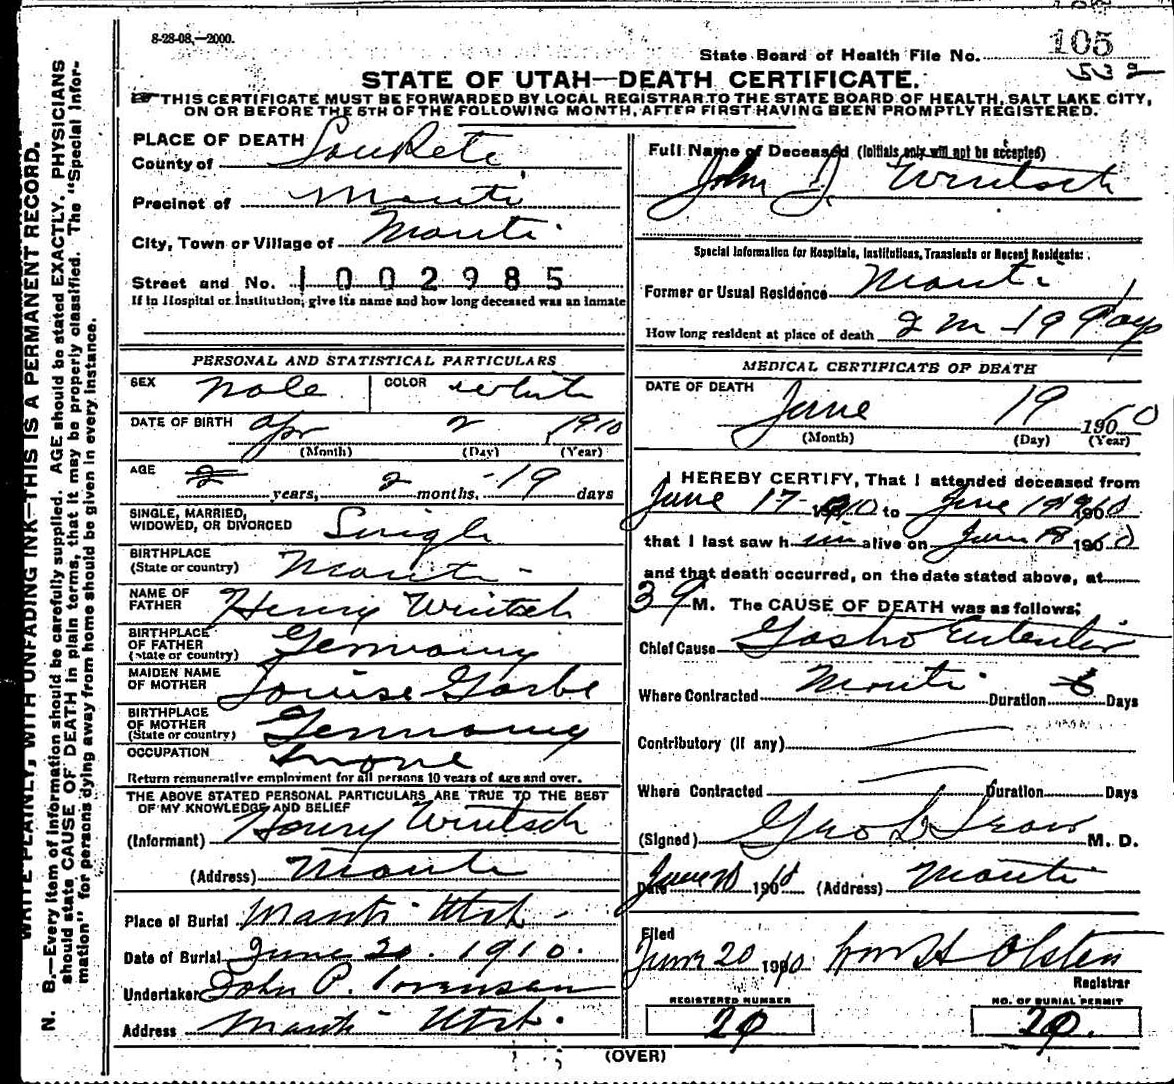 8-28-08,—2000.
State Board of Health File No. 105
532
STATE OF UTAH—DEATH CERTIFICATE.
THIS CERTIFICATE MUST BE FORWARDED BY LOCAL REGISTRAR TO THE STATE BOARD OF HEALTH, SALT LAKE CITY,
ON OR BEFORE THE 5TH OF THE FOLLOWING MONTH, AFTER FIRST HAVING BEEN PROMPTLY REGISTERED.
WRITE PLAINLY, WITH UNFADING INK—THIS IS A PERMANENT RECORD.
N. B.—Every item of information should be carefully supplied. AGE should be stated EXACTLY. PHYSICIANS
should state CAUSE OF DEATH in plain terms, that it may be properly classified. The "Special Infor-
mation" for persons dying away from home should be given in every instance.
PLACE OF DEATH
County of SanPete
Precinct of Manti
City, Town or Village of Manti
Street and No. 1002985
If in Hospital or Institution, give its name and how long deceased was an inmate
PERSONAL AND STATISTICAL PARTICULARS
SEX Male COLOR white
DATE OF BIRTH Apr 2 1910
(Month) (Day) (Year)
AGE
years, 2 months, 19 days
SINGLE, MARRIED,
WIDOWED, OR DIVORCED Single
BIRTHPLACE
(State or country) Manti
NAME OF
FATHER Henry Wintsch
BIRTHPLACE
OF FATHER
(State or country) Germany
MAIDEN NAME
OF MOTHER Louise Garbe
BIRTHPLACE
OF MOTHER
(State or country) Germany
OCCUPATION None
Return remunerative employment for all persons 10 years of age and over.
THE ABOVE STATED PERSONAL PARTICULARS ARE TRUE TO THE BEST
OF MY KNOWLEDGE AND BELIEF
(Informant) Henry Wintsch
(Address) Manti
Place of Burial Manti Utah
Date of Burial June 20. 1910.
Undertaker John P. Sorensen
Address Manti Utah.
Full Name of Deceased (Initials only will not be accepted)
John J. Wintsch
Special Information for Hospitals, Institutions, Transients or Recent Residents:
Former or Usual Residence Manti
How long resident at place of death 2 m - 19 days
MEDICAL CERTIFICATE OF DEATH
DATE OF DEATH
June 19 1910
(Month) (Day) (Year)
I HEREBY CERTIFY, That I attended deceased from
June 17 1910 to June 19 1910
that I last saw him alive on June 18 1910
and that death occurred, on the date stated above, at
M. The CAUSE OF DEATH was as follows:
Chief Cause Gastro Enteritis
Where Contracted Manti Duration Days
Contributory (if any)
Where Contracted Duration Days
(Signed) Geo L M. D.
Date June 1910 (Address) Manti
Filed
June 20 1910 Wm H Olsten
Registrar
REGISTERED NUMBER
20
NO. OF BURIAL PERMIT
20.
(OVER)